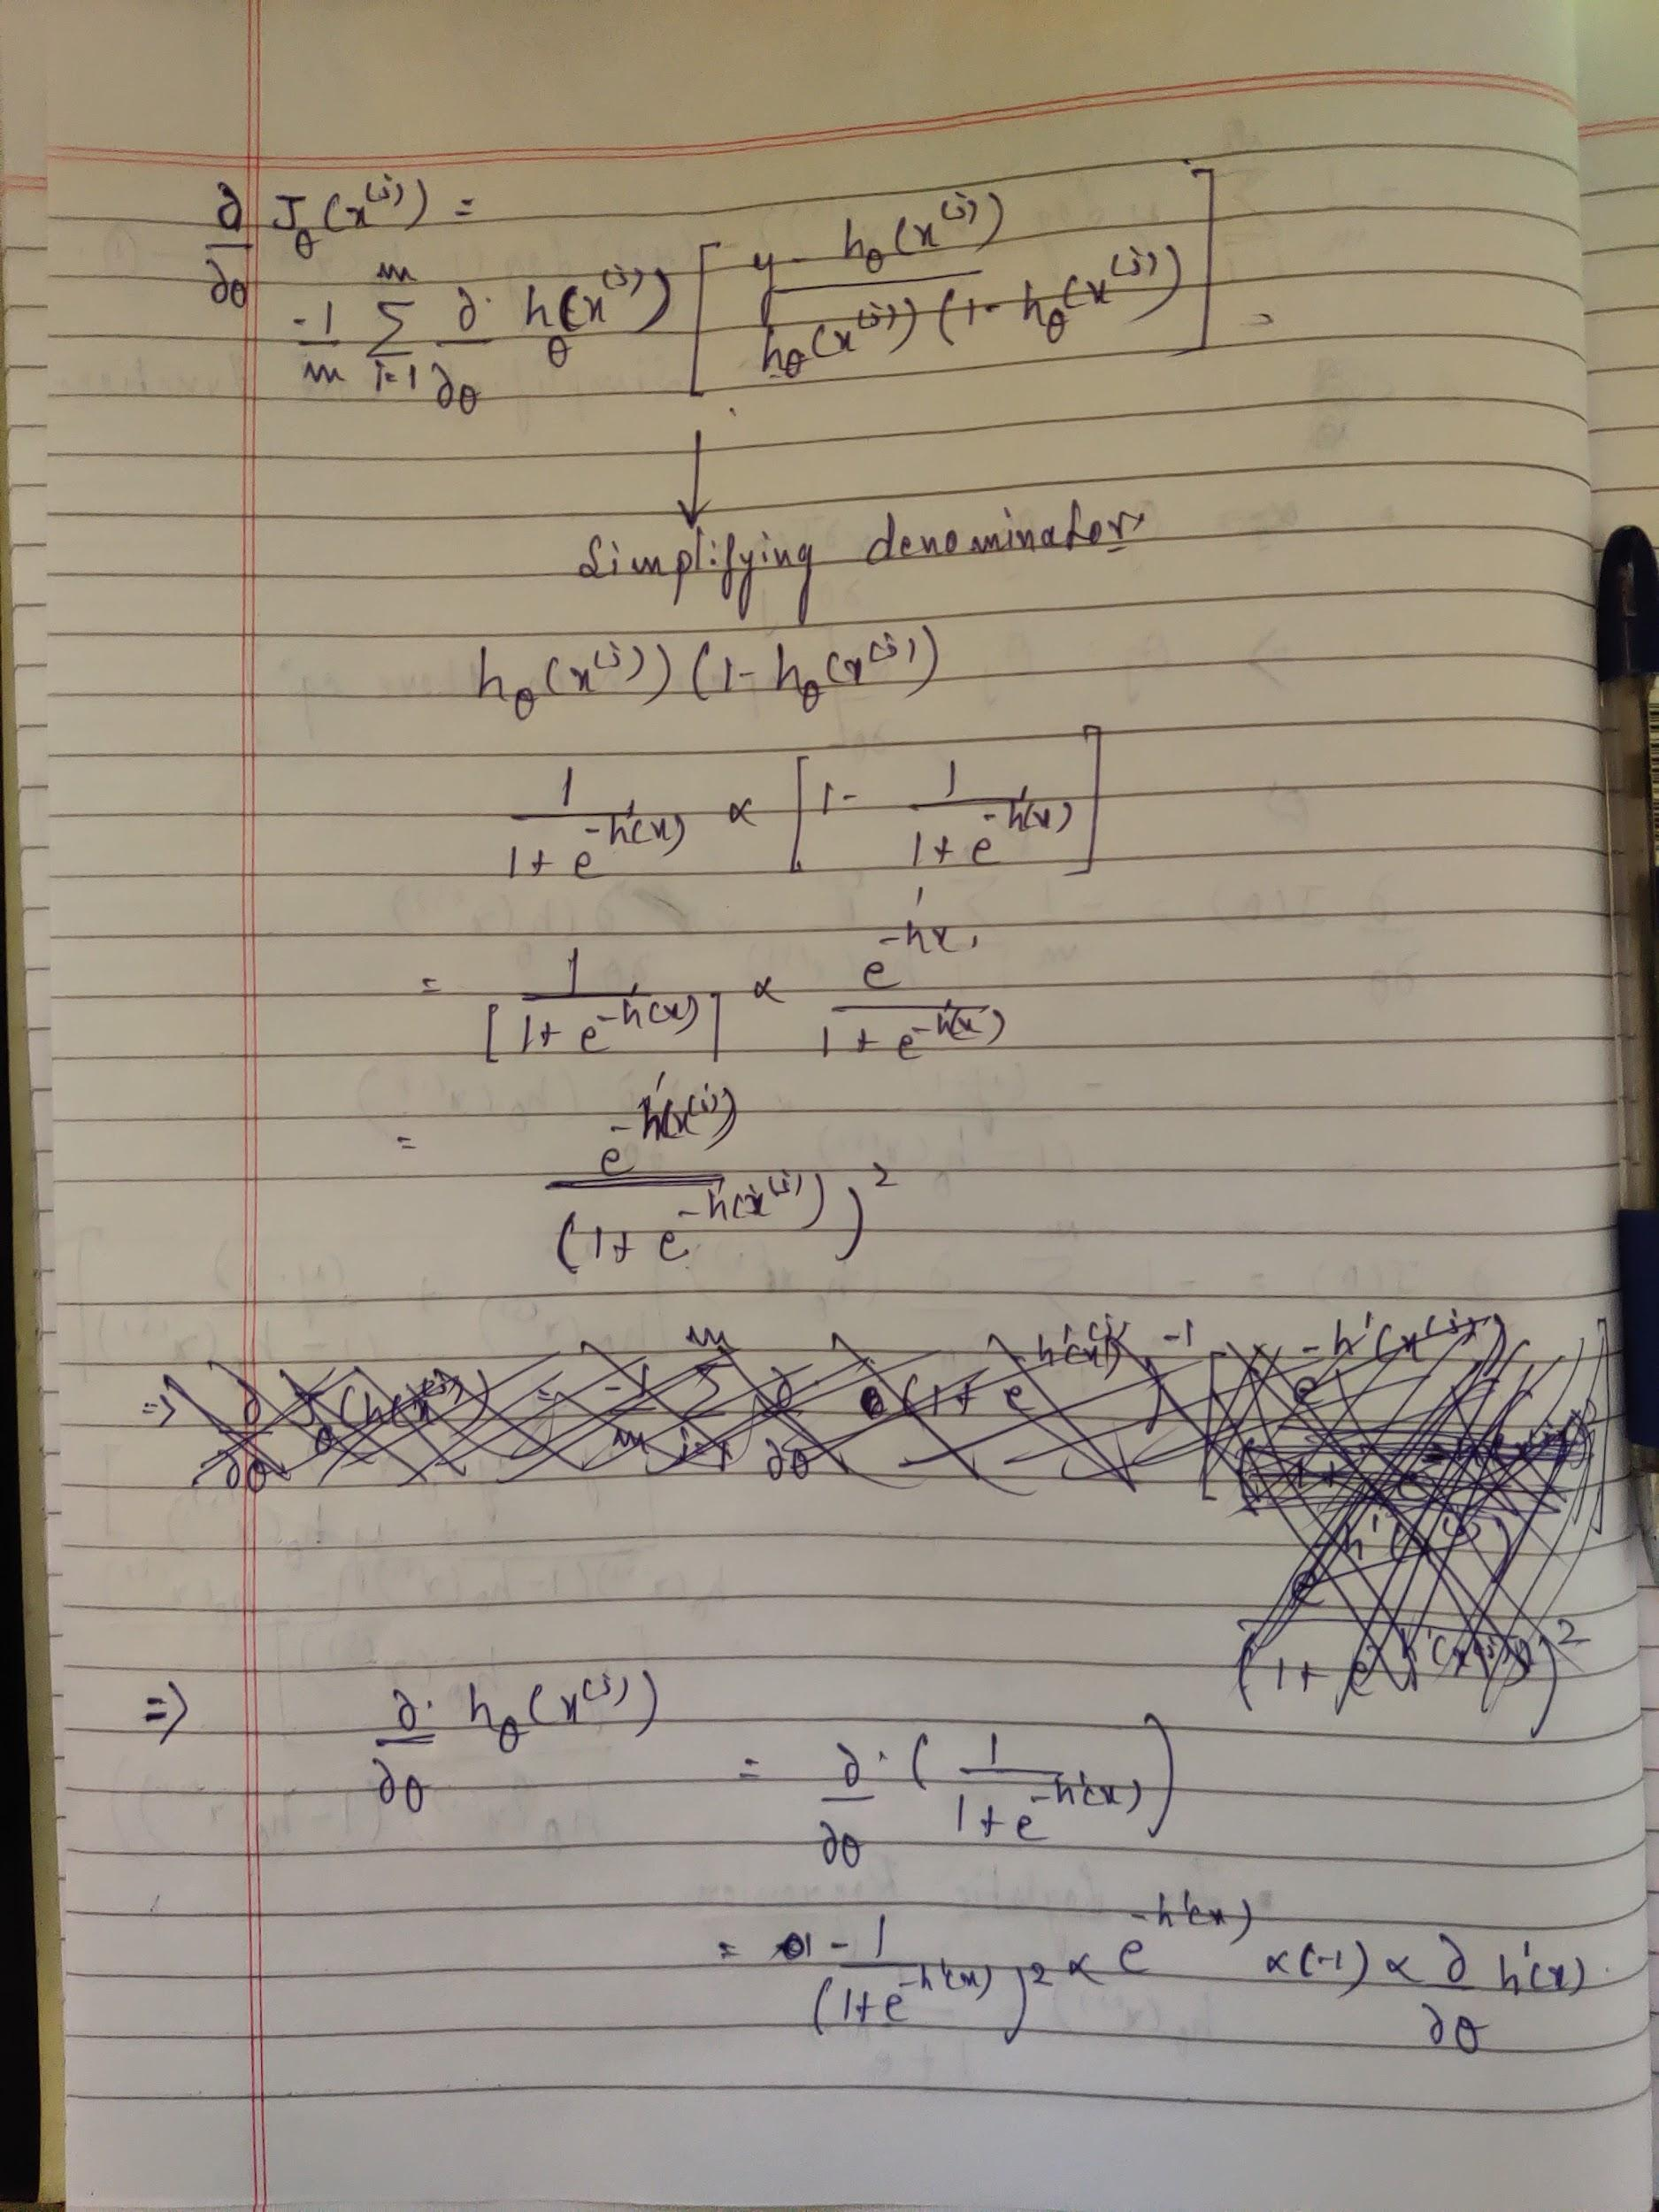 ∂/∂θ J_θ(x^(j)) =
-1/m Σ_{i=1}^{m} ∂/∂θ h_θ(x^(j)) [ (y - h_θ(x^(j))) / (h_θ(x^(j)) (1 - h_θ(x^(j)))) ] =
↓
Simplifying denominator
h_θ(x^(j)) (1 - h_θ(x^(j))
1/(1+e^{-h'(x)}) × [1 - 1/(1+e^{-h'(x)})]
= 1/[1+e^{-h'(x)}] × e^{-h'x}/(1+e^{-h'(x)})
= e^{-h'(x^(j))}/(1+e^{-h'(x^(j))})^2
=> ∂/∂θ h_θ(x^(j))
= ∂/∂θ (1/(1+e^{-h'(x)}))
= -1/(1+e^{-h'(x)})^2 × e^{-h'(x)} × (-1) × ∂/∂θ h'(x)